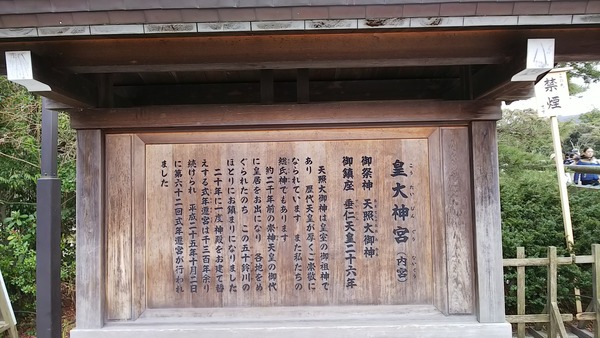 皇大神宮（内宮）
こうたいじんぐう　ないくう
御祭神　天照大御神
御鎮座　垂仁天皇二十六年
天照大御神は皇室の御祖神で
あり　歴代天皇が厚くご崇敬に
なられています　また私たちの
総氏神でもあります
約二千年前の崇神天皇の御代
に皇居をお出になり　各地をめ
ぐられたのち　この五十鈴川の
ほとりにお鎮まりになりました
二十年に一度　神殿をお建て替
えする式年遷宮は千三百年余り
続けられ　平成二十五年十月二日
に第六十二回式年遷宮が行われ
ました
禁煙